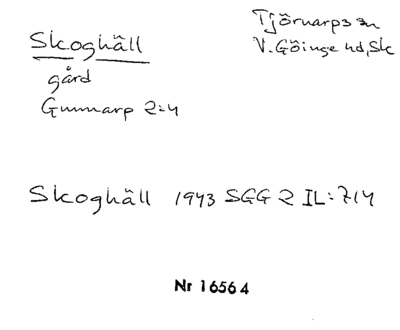 Skoghäll
Tjörnarps sn
V. Göinge hd, Sk
gård
Gunnarp 2:4
Skoghäll 1943 SGG 2 IL: 714
Nr 16564